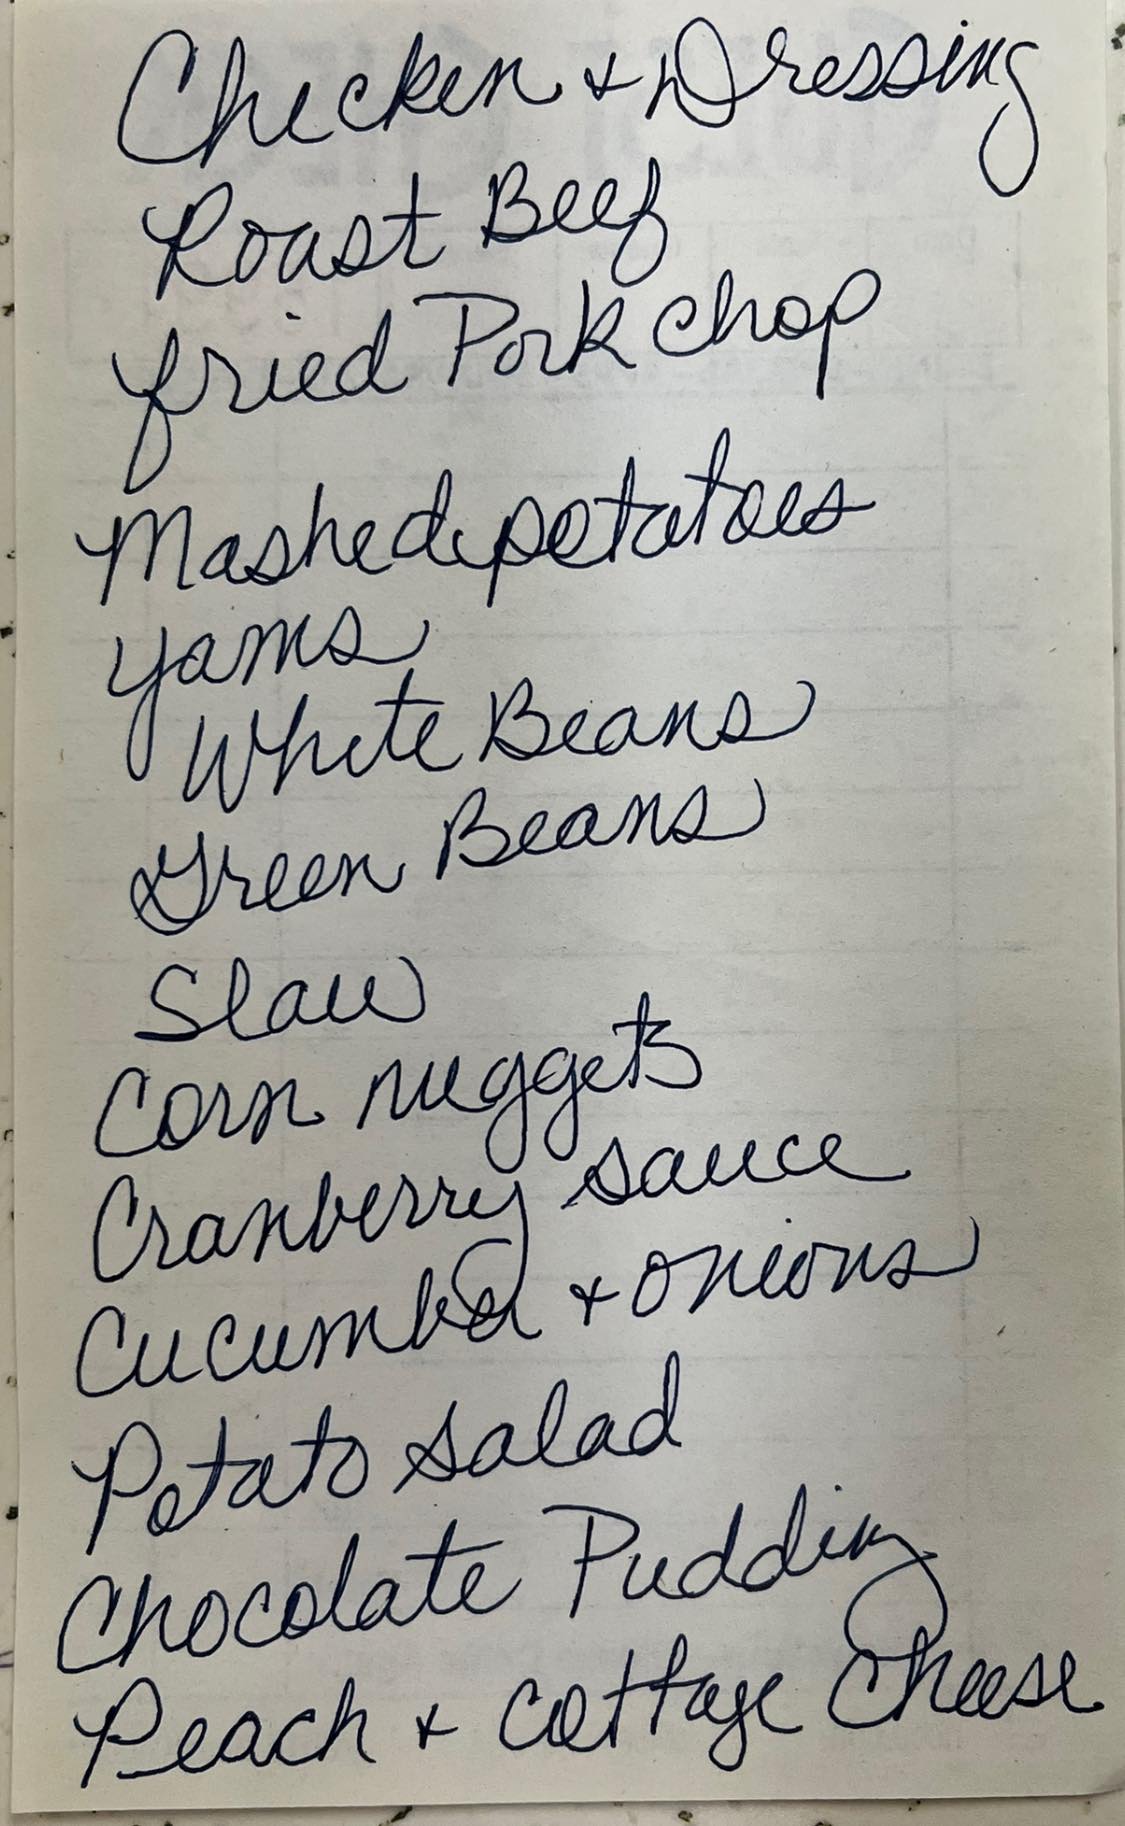 Chicken + Dressing
Roast Beef
fried Pork chop
Mashed potatoes
yams
White Beans
Green Beans
Slaw
Corn nuggets
Cranberry sauce
Cucumber + onions
Potato salad
Chocolate Pudding
Peach + Cottage Cheese